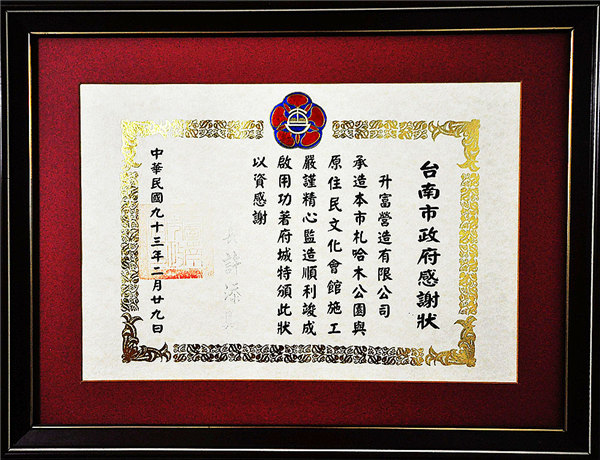 台南市政府感謝狀
升富營造有限公司
承造本市札哈木公園與
原住民文化會館施工
嚴謹精心監造順利竣成
啟用功著府城特頒此狀
以資感謝
市長許添財
中華民國九十三年二月廿九日